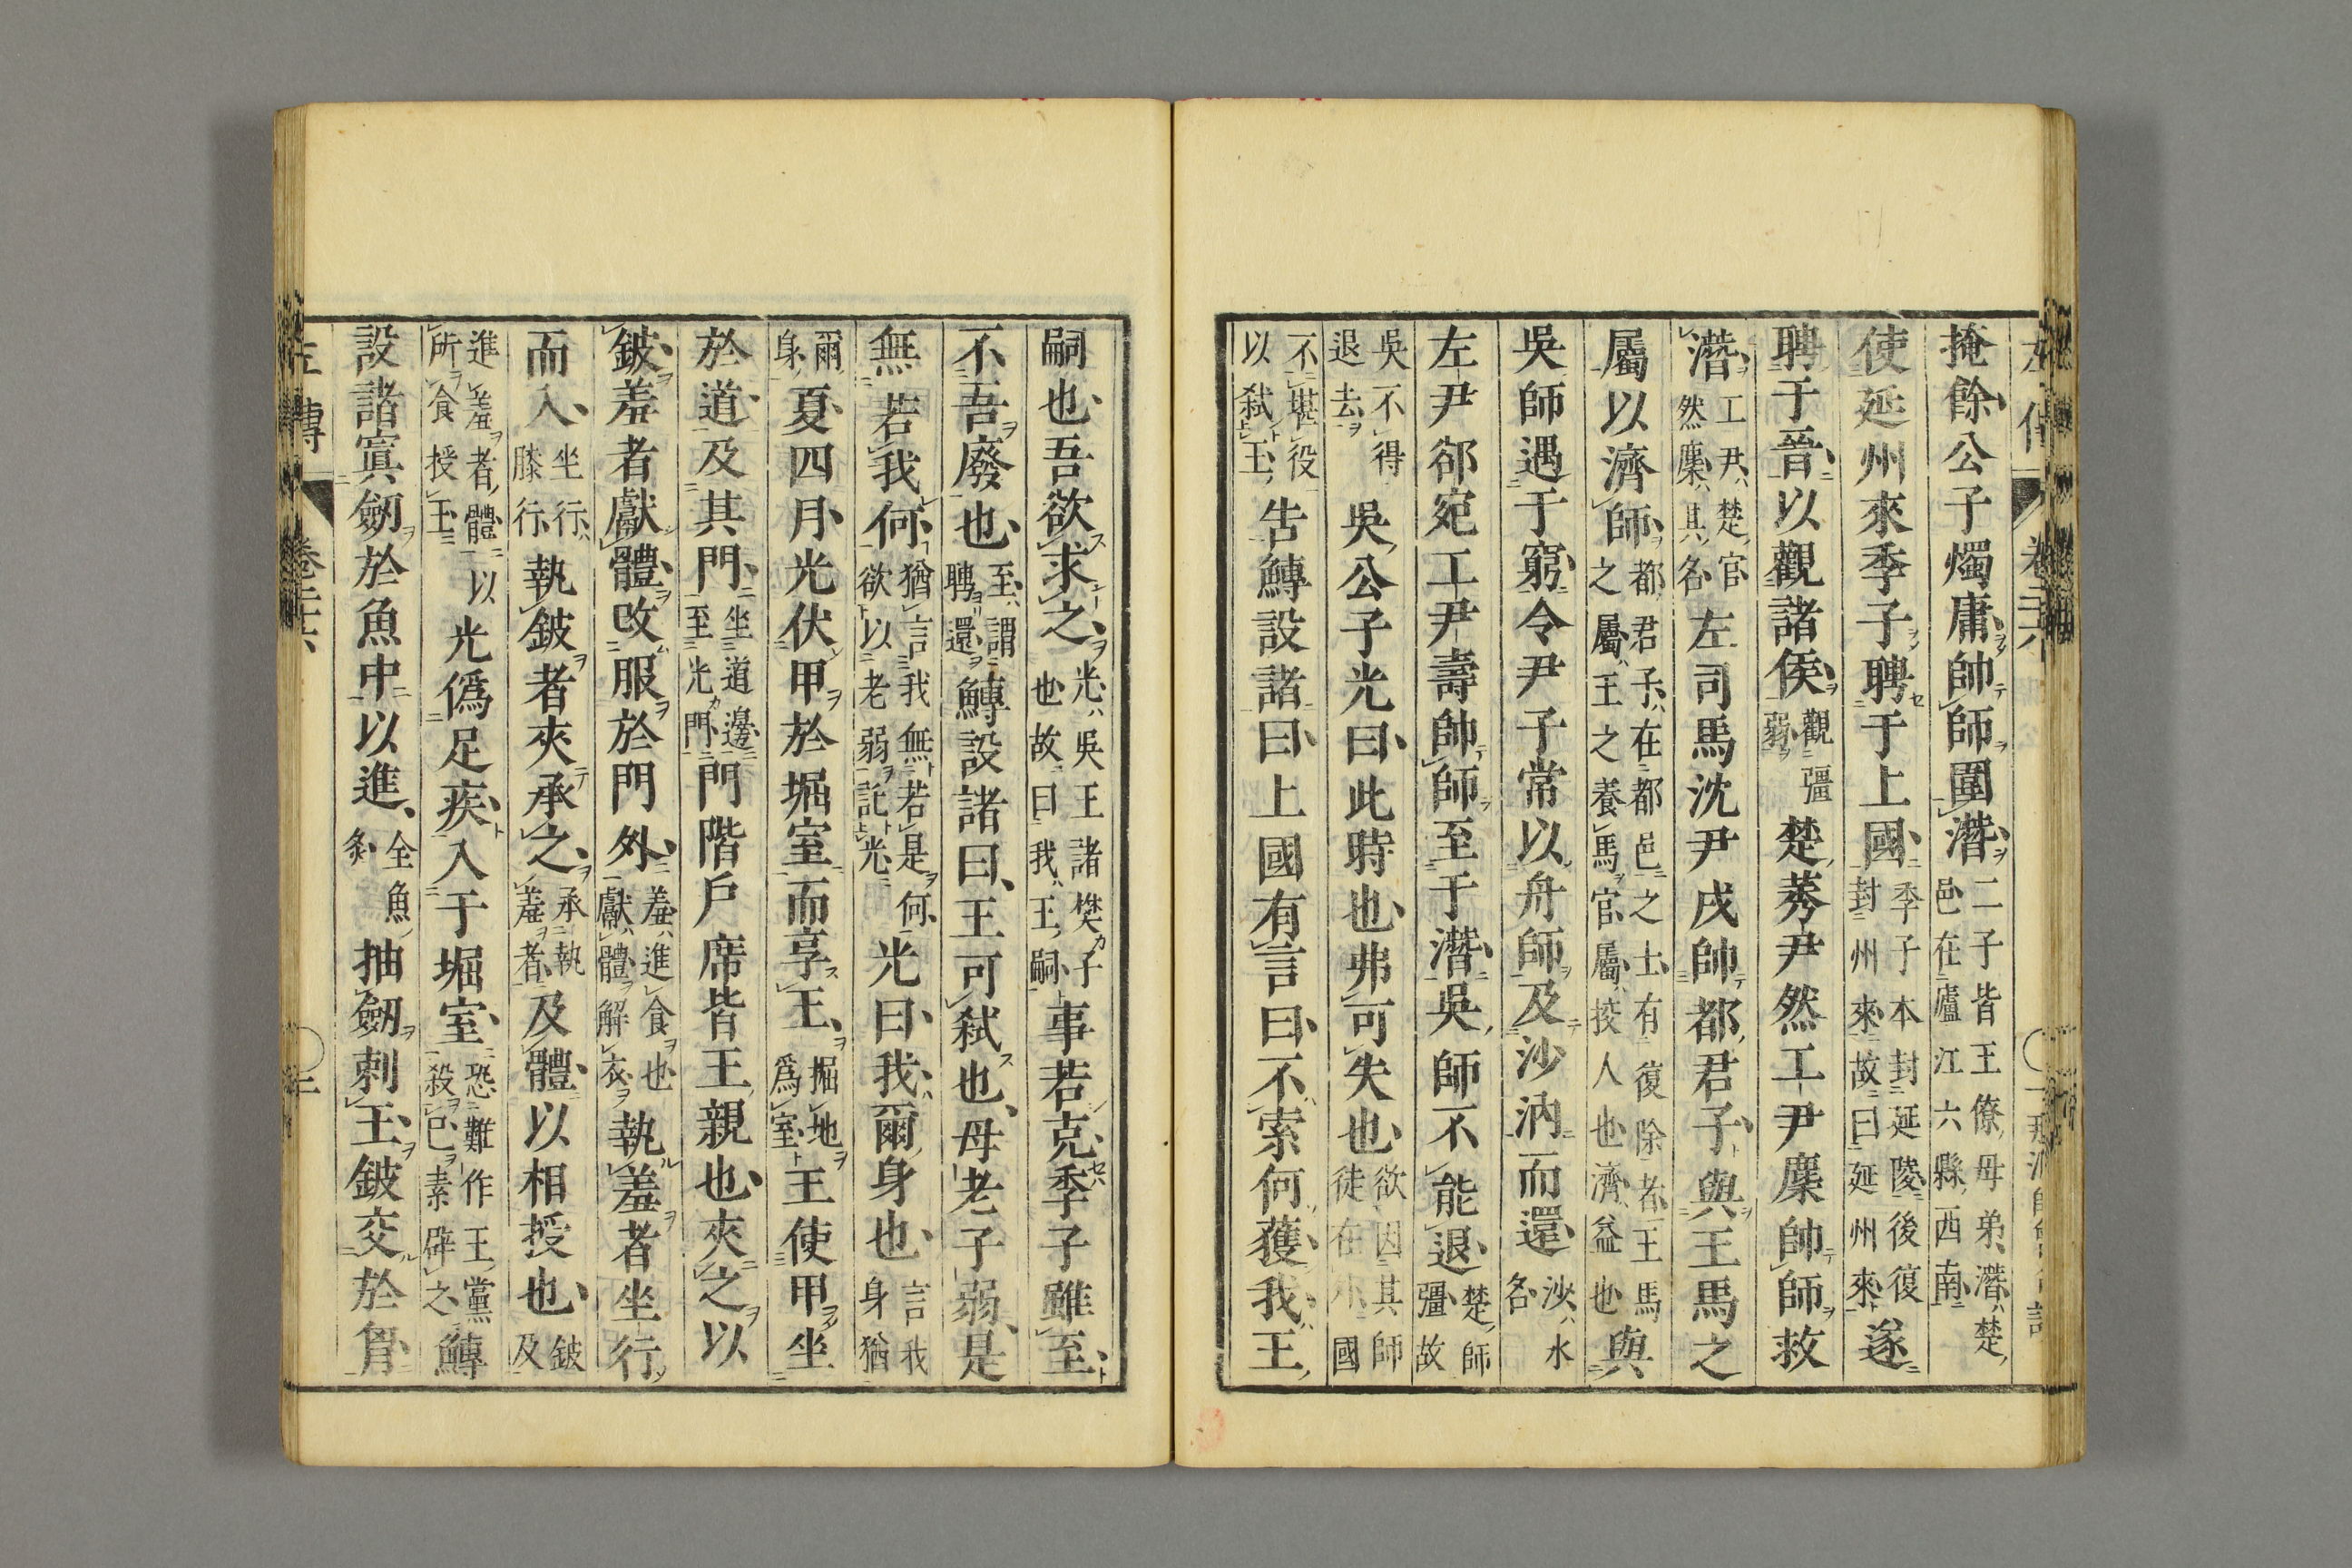 掩餘公子燭庸帥師圍潛二子皆王僚母弟潛楚邑在廬江六縣西南
使延州來季子聘于上國季子本封延陵後復封州來故曰延州來遂
聘于晉以觀諸侯觀彊弱楚莠尹然工尹麇帥師救
潛工尹楚官然麇其名左司馬沈尹戌帥都君子與王馬之
屬以濟師都君子在都邑之士有復除者王馬之屬王之養馬官屬挍人也濟益也與
吳師遇于窮令尹子常以舟師及沙汭而還沙水名
左尹郤宛工尹壽帥師至于潛吳師不能退楚師彊故
吳不得退去吳公子光曰此時也弗可失也欲因其師徒在外國
不堪役以弒王告鱄設諸曰上國有言曰不索何獲我王
嗣也吾欲求之光吳王諸樊子也故曰我王嗣事若克季子雖至
不吾廢也至謂聘還鱄設諸曰王可弒也母老子弱是
無若我何猶言我無若是何欲以老弱託光光曰我爾身也言我身猶
爾身夏四月光伏甲於堀室而享王掘地爲室王使甲坐
於道及其門坐道邊至光門門階戶席皆王親也夾之以
鈹羞者獻體改服於門外羞進食也獻體解衣執羞者坐行
而入坐行膝行執鈹者夾承之承執羞者及體以相授也鈹及
進羞者體以所食授王光僞足疾入于堀室恐難作王黨殺己素辟之鱄
設諸寘劒於魚中以進全魚炙抽劒刺王鈹交於胷
左傳
卷二十六
二